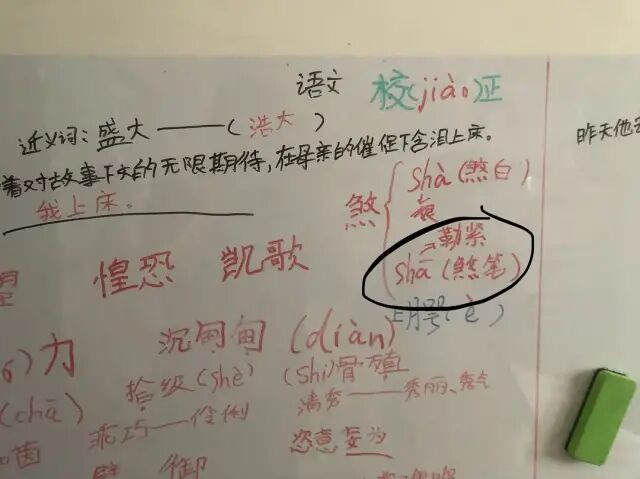 语文
校(jiào)正
近义词：盛大——(浩大)
昨天他
着对故事下文的无限期待，在母亲的催促下含泪上床。
我上床。
煞
shà(煞白)
很
→勒紧
shā(煞笔)
惶恐 凯歌
上腭(è)
力 沉甸甸(diàn)
拾级(shè) (shi)骨殖
(chā) 清秀——秀丽、秀气
乖巧——伶俐 恣意妄为
御